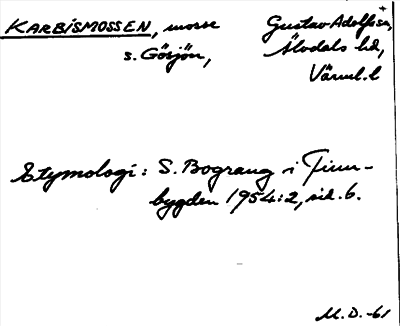 KARBISMOSSEN, mosse Gustav Adolfs sn,
s. Görsjön, Älvdals hd,
Värml. l
Etymologi: S. Bograng i Finn-
bygden 1954:2, sid. 6.
M.D.-61